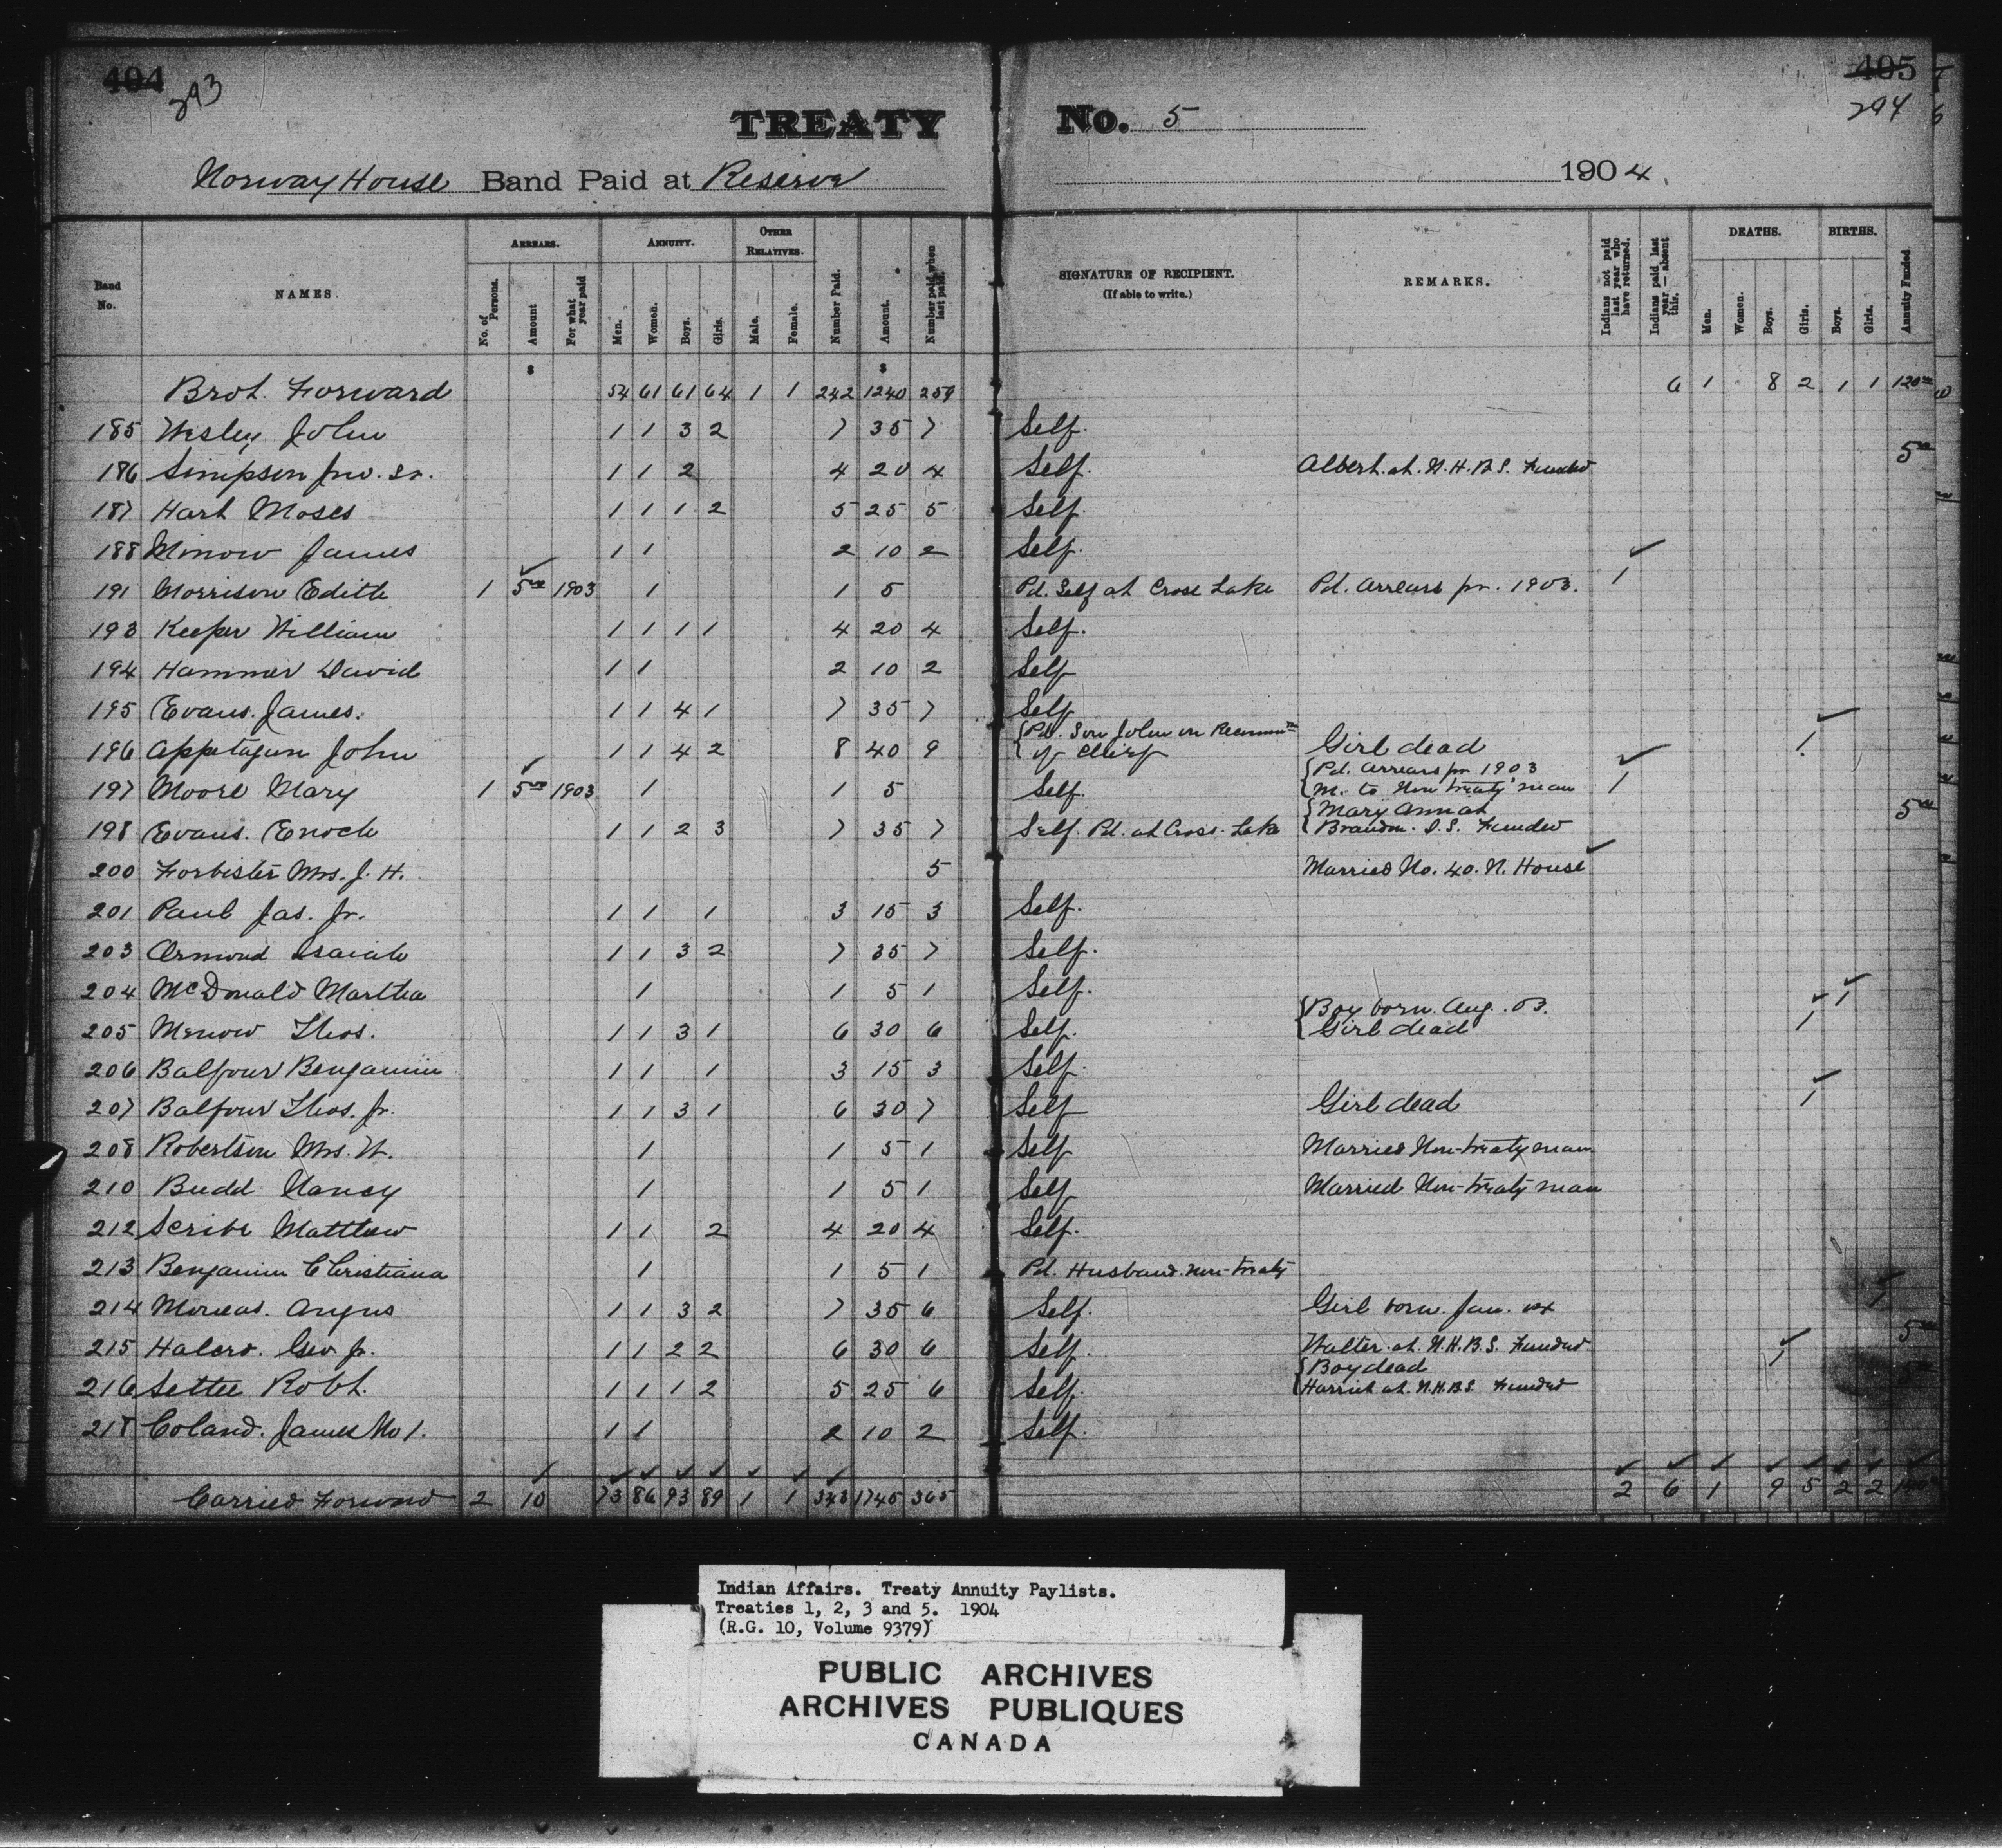 404 405
293 294
TREATY No. 5
Norway House Band Paid at Reserve 1904.
Band No. NAMES. ARREARS. No. of Persons. Amount For what year paid ANNUITY. Men. Women. Boys. Girls. OTHER RELATIVES. Male. Female. Number Paid. Amount. Number paid when last paid. SIGNATURE OF RECIPIENT. (If able to write.) REMARKS. Indians not paid last year who have returned. Indians paid last year—absent this. DEATHS. Men. Women. Boys. Girls. BIRTHS. Boys. Girls. Annuity Funded
$ $
Brot. Forward 54 61 61 64 1 1 242 1240 259 6 1 8 2 1 1 120 00
185 Wesley John 1 1 3 2 7 35 7 Self.
186 Simpson Jno. Sr. 1 1 2 4 20 4 Self. Albert at N.H.B.S. Funded 5 00
187 Hart Moses 1 1 1 2 5 25 5 Self
188 Minow James 1 1 2 10 2 Self.
191 Morrison Edith 1 5 00 1903 1 1 5 Pd. Self at Cross Lake Pd. Arrears for. 1903. 1
193 Keeper William 1 1 1 1 4 20 4 Self.
194 Hammer David 1 1 2 10 2 Self
195 Evans. James. 1 1 4 1 7 35 7 Self
196 Appetagun John 1 1 4 2 8 40 9 {Pd. Son John on Recomm of Chief Girl dead 1
197 Moore Mary 1 5 00 1903 1 1 5 Self. {Pd. arrears for 1903 m. to Non treaty man 1
198 Evans. Enoch 1 1 2 3 7 35 7 Self. Pd. at Cross. Lake {Mary Ann at Brandon. I.S. Funded 5 00
200 Forbister Mrs. J. H. 5 Married No. 40. N. House
201 Paul Jas. Jr. 1 1 1 3 15 3 Self.
203 Ormond Isaiah 1 1 3 2 7 35 7 Self.
204 McDonald Martha 1 1 5 1 Self.
205 Menow Thos. 1 1 3 1 6 30 6 Self. {Boy born Aug. 03. Girl dead 1 1
206 Balfour Benjamin 1 1 1 3 15 3 Self.
207 Balfour Thos. Jr. 1 1 3 1 6 30 7 Self Girl dead 1
208 Robertson Mrs. W. 1 1 5 1 Self Married Non-treaty man
210 Budd Nancy 1 1 5 1 Self Married Non-treaty man
212 Scribe Matthew 1 1 2 4 20 4 Self.
213 Benjamin Christiana 1 1 5 1 Pd. Husband. non-treaty
214 Moneas. Angus 1 1 3 2 7 35 6 Self. Girl born. Jan. 1
215 Halcro. Geo Jr. 1 1 2 2 6 30 6 Self. Walter at N.H.B.S. Funded 5 00
216 Settee Robt. 1 1 1 2 5 25 6 Self. {Boy dead Harriet at N.H.B.S Funded 1 5 00
218 Coland. James No 1. 1 1 2 10 2 Self.
Carried Forward 2 10 73 86 93 89 1 1 343 1745 365 2 6 1 9 5 2 2 140 00
Indian Affairs. Treaty Annuity Paylists.
Treaties 1, 2, 3 and 5. 1904
(R.G. 10, Volume 9379)
PUBLIC ARCHIVES
ARCHIVES PUBLIQUES
CANADA